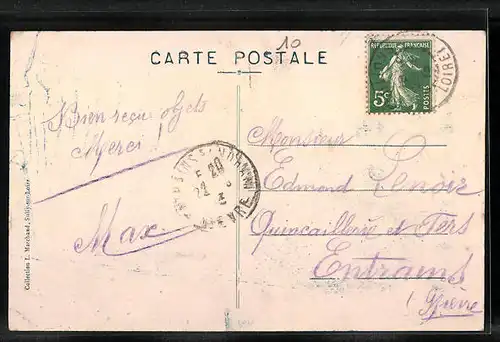 10
CARTE POSTALE
REPUBLIQUE FRANÇAISE
5c
POSTES
LOIRET
Bien reçu objets
Merci !
Max.
20
22
NIEVRE
Monsieur
Edmond Lenoir
Quincaillerie et Fers
Entrains
(Nièvre
Collection L. Marchand, Sully-sur-Loire